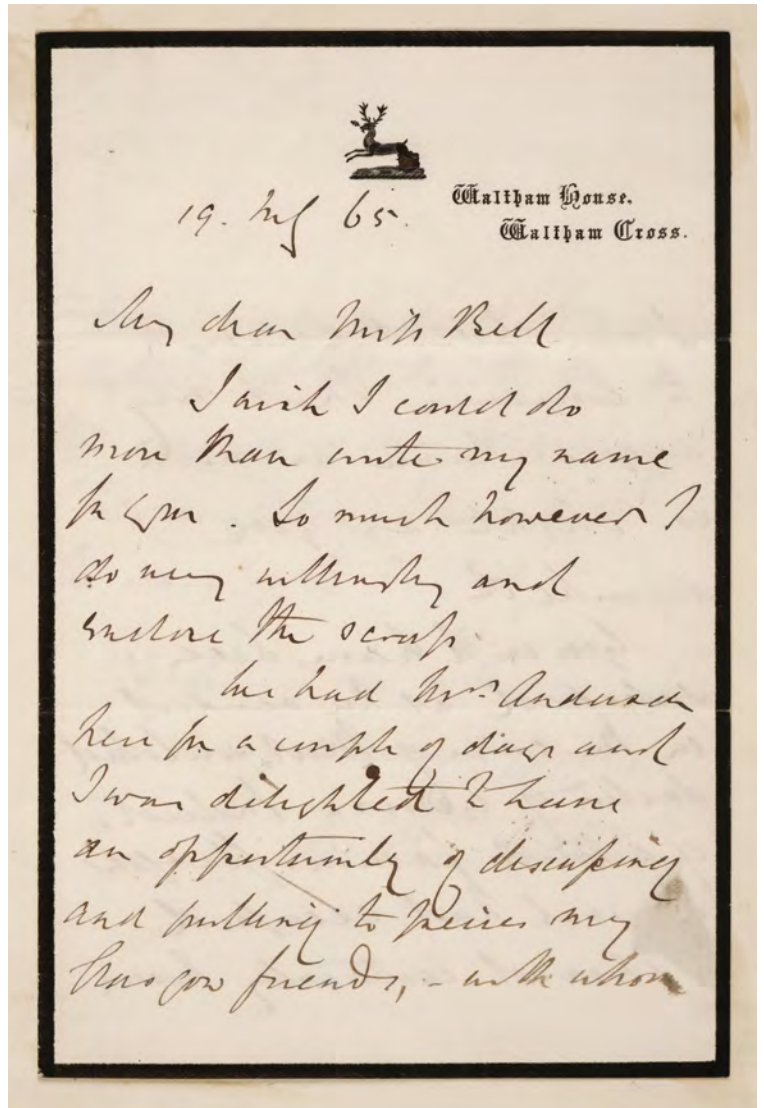 Waltham House,
Waltham Cross.
19. 65.
My dear Miss Bell
I wish I could do
more than write my name
for you. So much however I
do very willingly and
enclose the scrap.
We had Mrs. Anderson
here for a couple of days and
I was delighted to have
an opportunity of discussing
and pulling to pieces my
Glasgow friends, - with whom